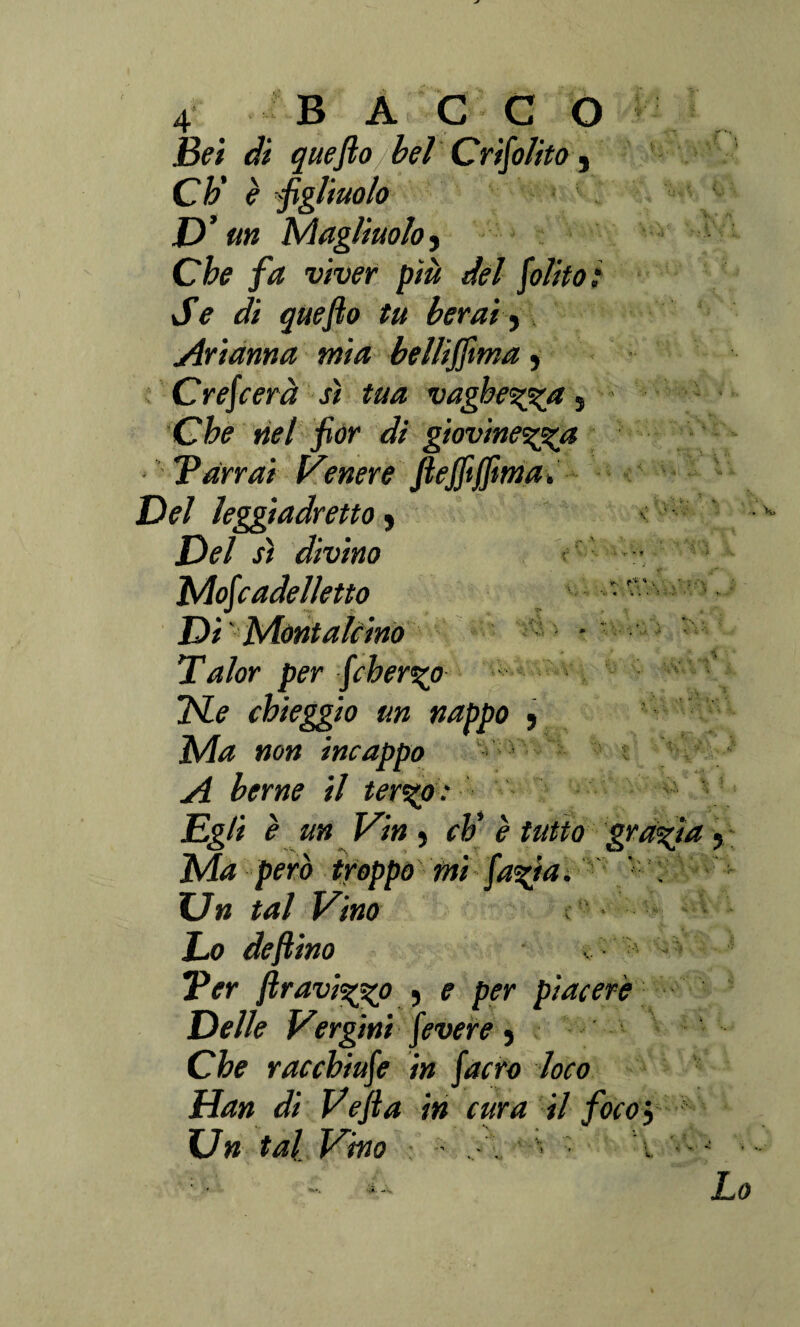 4 BACCO
Bei di queſto bel Criſolito,
Ch' è figliuolo
D' un Magliuolo,
Che fa viver più del ſolito:
Se di queſto tu berai,
Arianna mia belliſſima,
Creſcerà sì tua vaghezza,
Che nel fior di giovinezza
Parrai Venere ſteſſiſſima.
Del leggiadretto,
Del sì divino
Moſcadelletto
Di Montalcino
Talor per ſcherzo
Ne chieggio un nappo,
Ma non incappo
A berne il terzo:
Egli è un Vin, ch' è tutto grazia,
Ma però troppo mi ſazia.
Un tal Vino
Lo deſtino
Per ſtravizzo, e per piacere
Delle Vergini ſevere,
Che racchiuſe in ſacro loco
Han di Veſta in cura il foco;
Un tal Vino
Lo